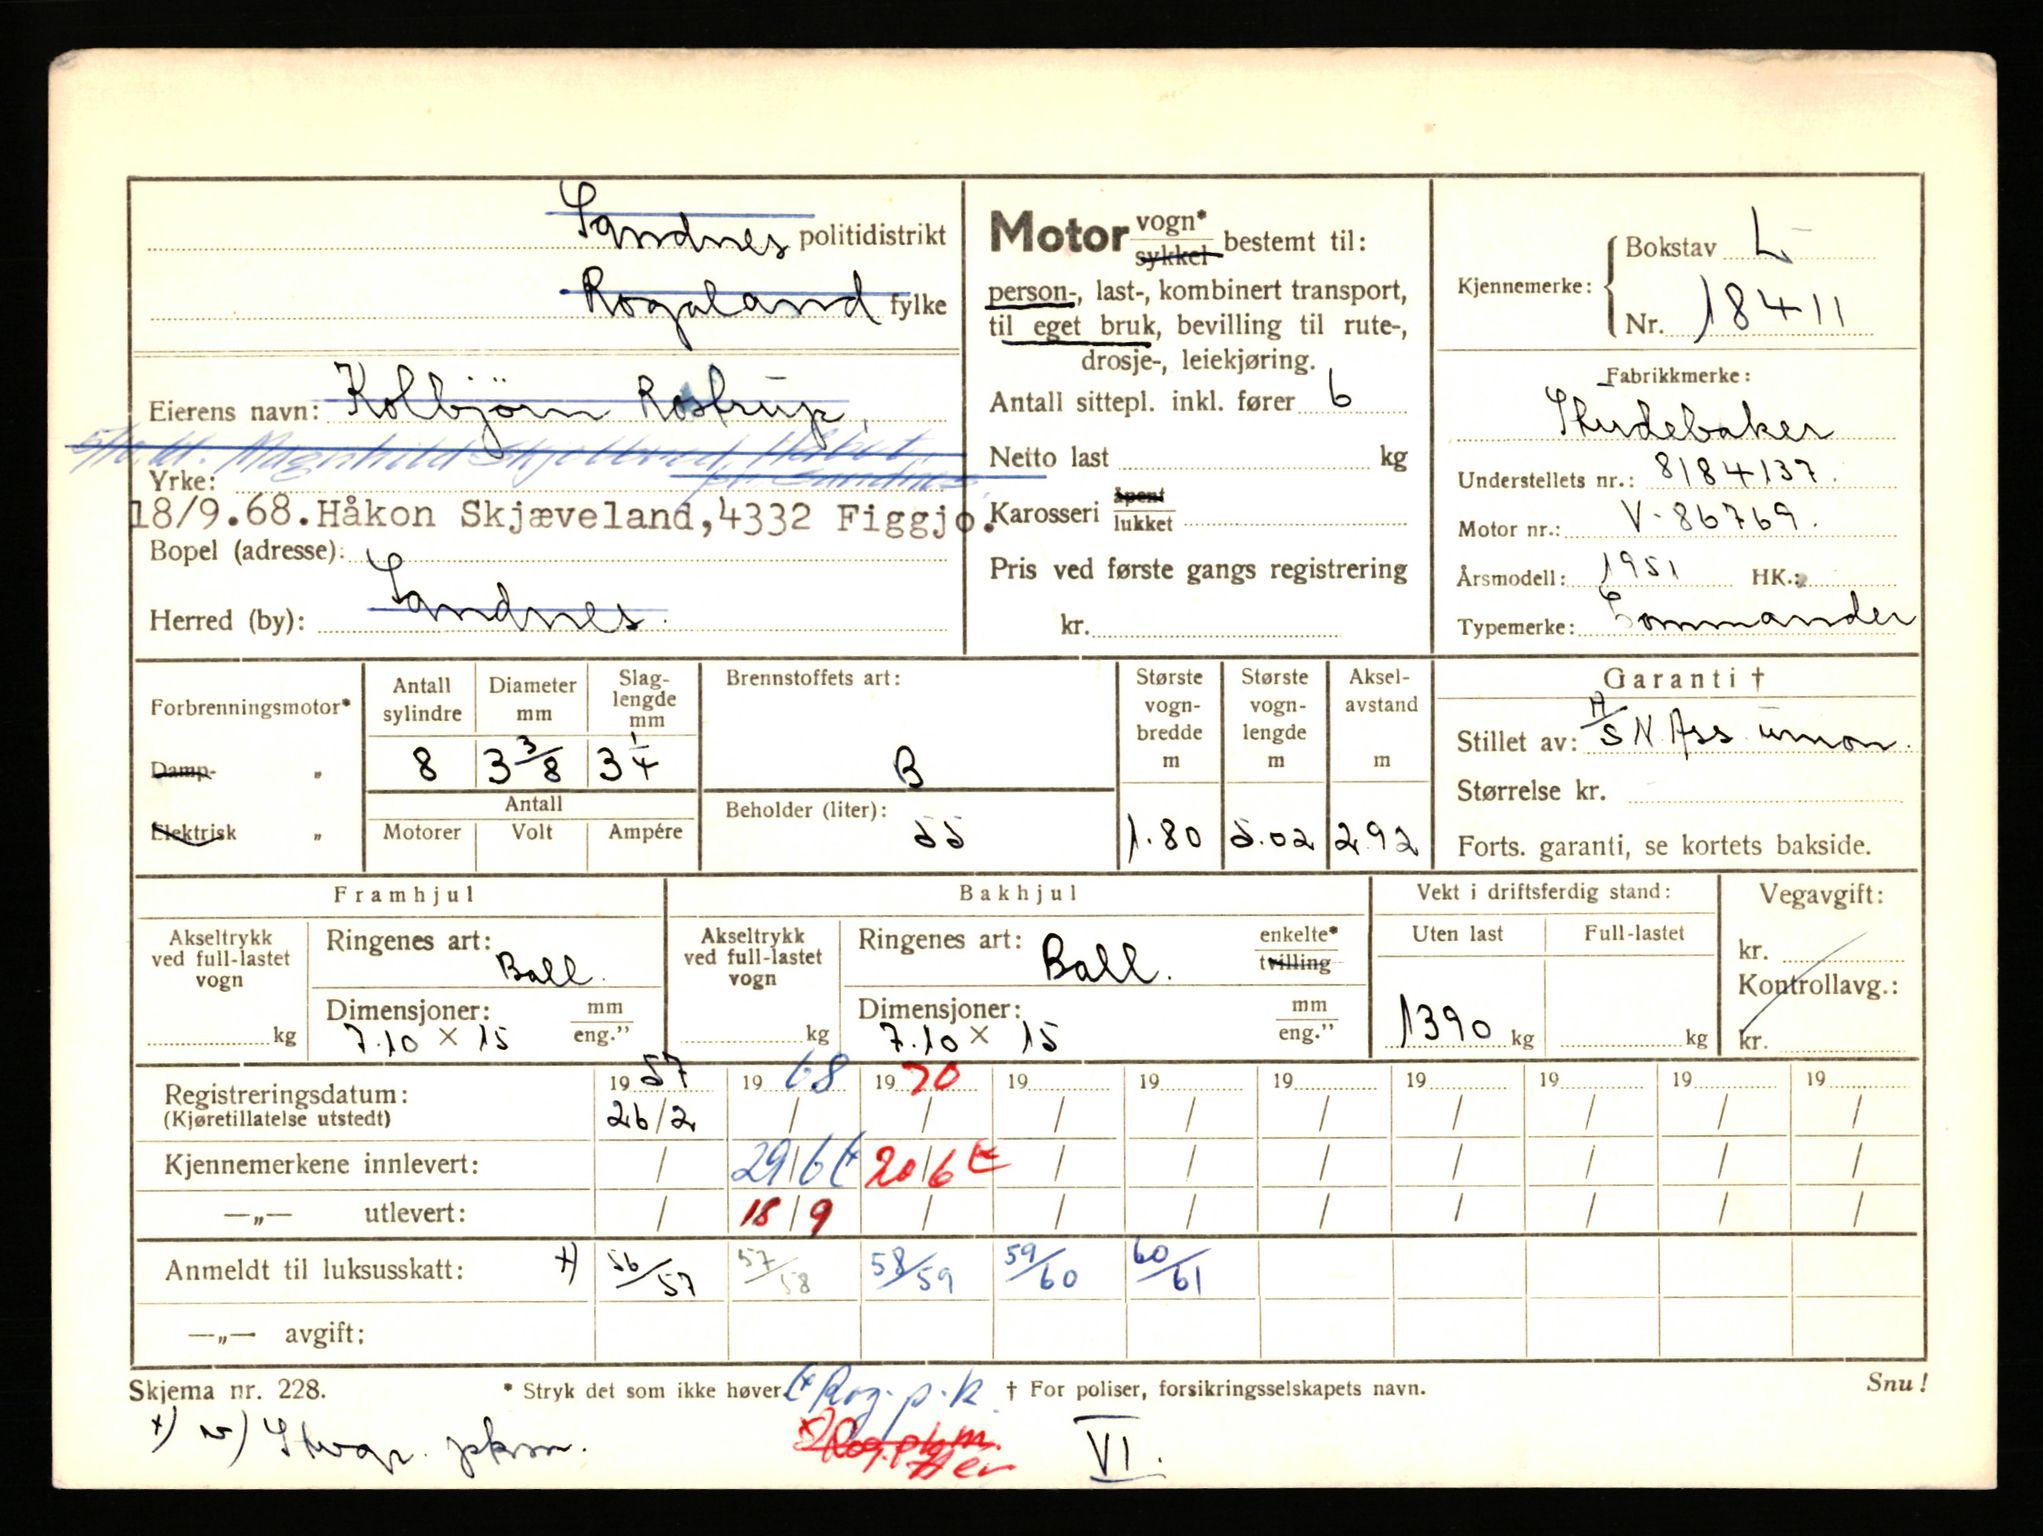 Sandnes politidistrikt
Rogaland fylke
Eierens navn: Kolbjørn Rostrup,
Yrke:
18/9.68. Håkon Skjæveland, 4332 Figgjo.
Bopel (adresse):
Herred (by): Sandnes.
Motor vogn* sykkel bestemt til:
person-, last-, kombinert transport,
til eget bruk, bevilling til rute-,
drosje-, leiekjøring.
Antall sittepl. inkl. fører 6
Netto last kg
Karosseri åpent lukket
Pris ved første gangs registrering
kr.
Kjennemerke: Bokstav L
Nr. 18411
Fabrikkmerke:
Studebaker
Understellets nr.: 8184137.
Motor nr.: V-86769.
Årsmodell: 1951 HK.:
Typemerke: Commander
Forbrenningsmotor*
Damp- „
Elektrisk „
Antall sylindre 8
Diameter mm 3 3/8
Slaglengde mm 3 1/4
Antall
Motorer Volt Ampére
Brennstoffets art:
B
Beholder (liter):
55
Største vognbredde m 1.80
Største vognlengde m 5.02
Akselavstand m 2.92
Garanti †
Stillet av: A/S N. Ass. union.
Størrelse kr.
Forts. garanti, se kortets bakside.
Framhjul
Akseltrykk ved full-lastet vogn kg
Ringenes art: Ball.
Dimensjoner: mm
7.10 × 15 eng."
Bakhjul
Akseltrykk ved full-lastet vogn kg
Ringenes art: Ball. enkelte* tvilling
Dimensjoner: mm
7.10 × 15 eng."
Vekt i driftsferdig stand:
Uten last Full-lastet
1390 kg kg
Vegavgift:
kr.
Kontrollavg.:
kr.
Registreringsdatum: 19 57 19 68 19 70 19 19 19 19 19 19 19
(Kjøretillatelse utstedt) 26/2 / / / / / / / / /
Kjennemerkene innlevert: / 29/6 20/6 / / / / / / /
—„— utlevert: / 18/9 / / / / / / / /
Anmeldt til luksusskatt: x) 56/57 57/58 58/59 59/60 60/61
—„— avgift:
Skjema nr. 228. * Stryk det som ikke høver. Rog. p.k. † For poliser, forsikringsselskapets navn. Snu!
VI.